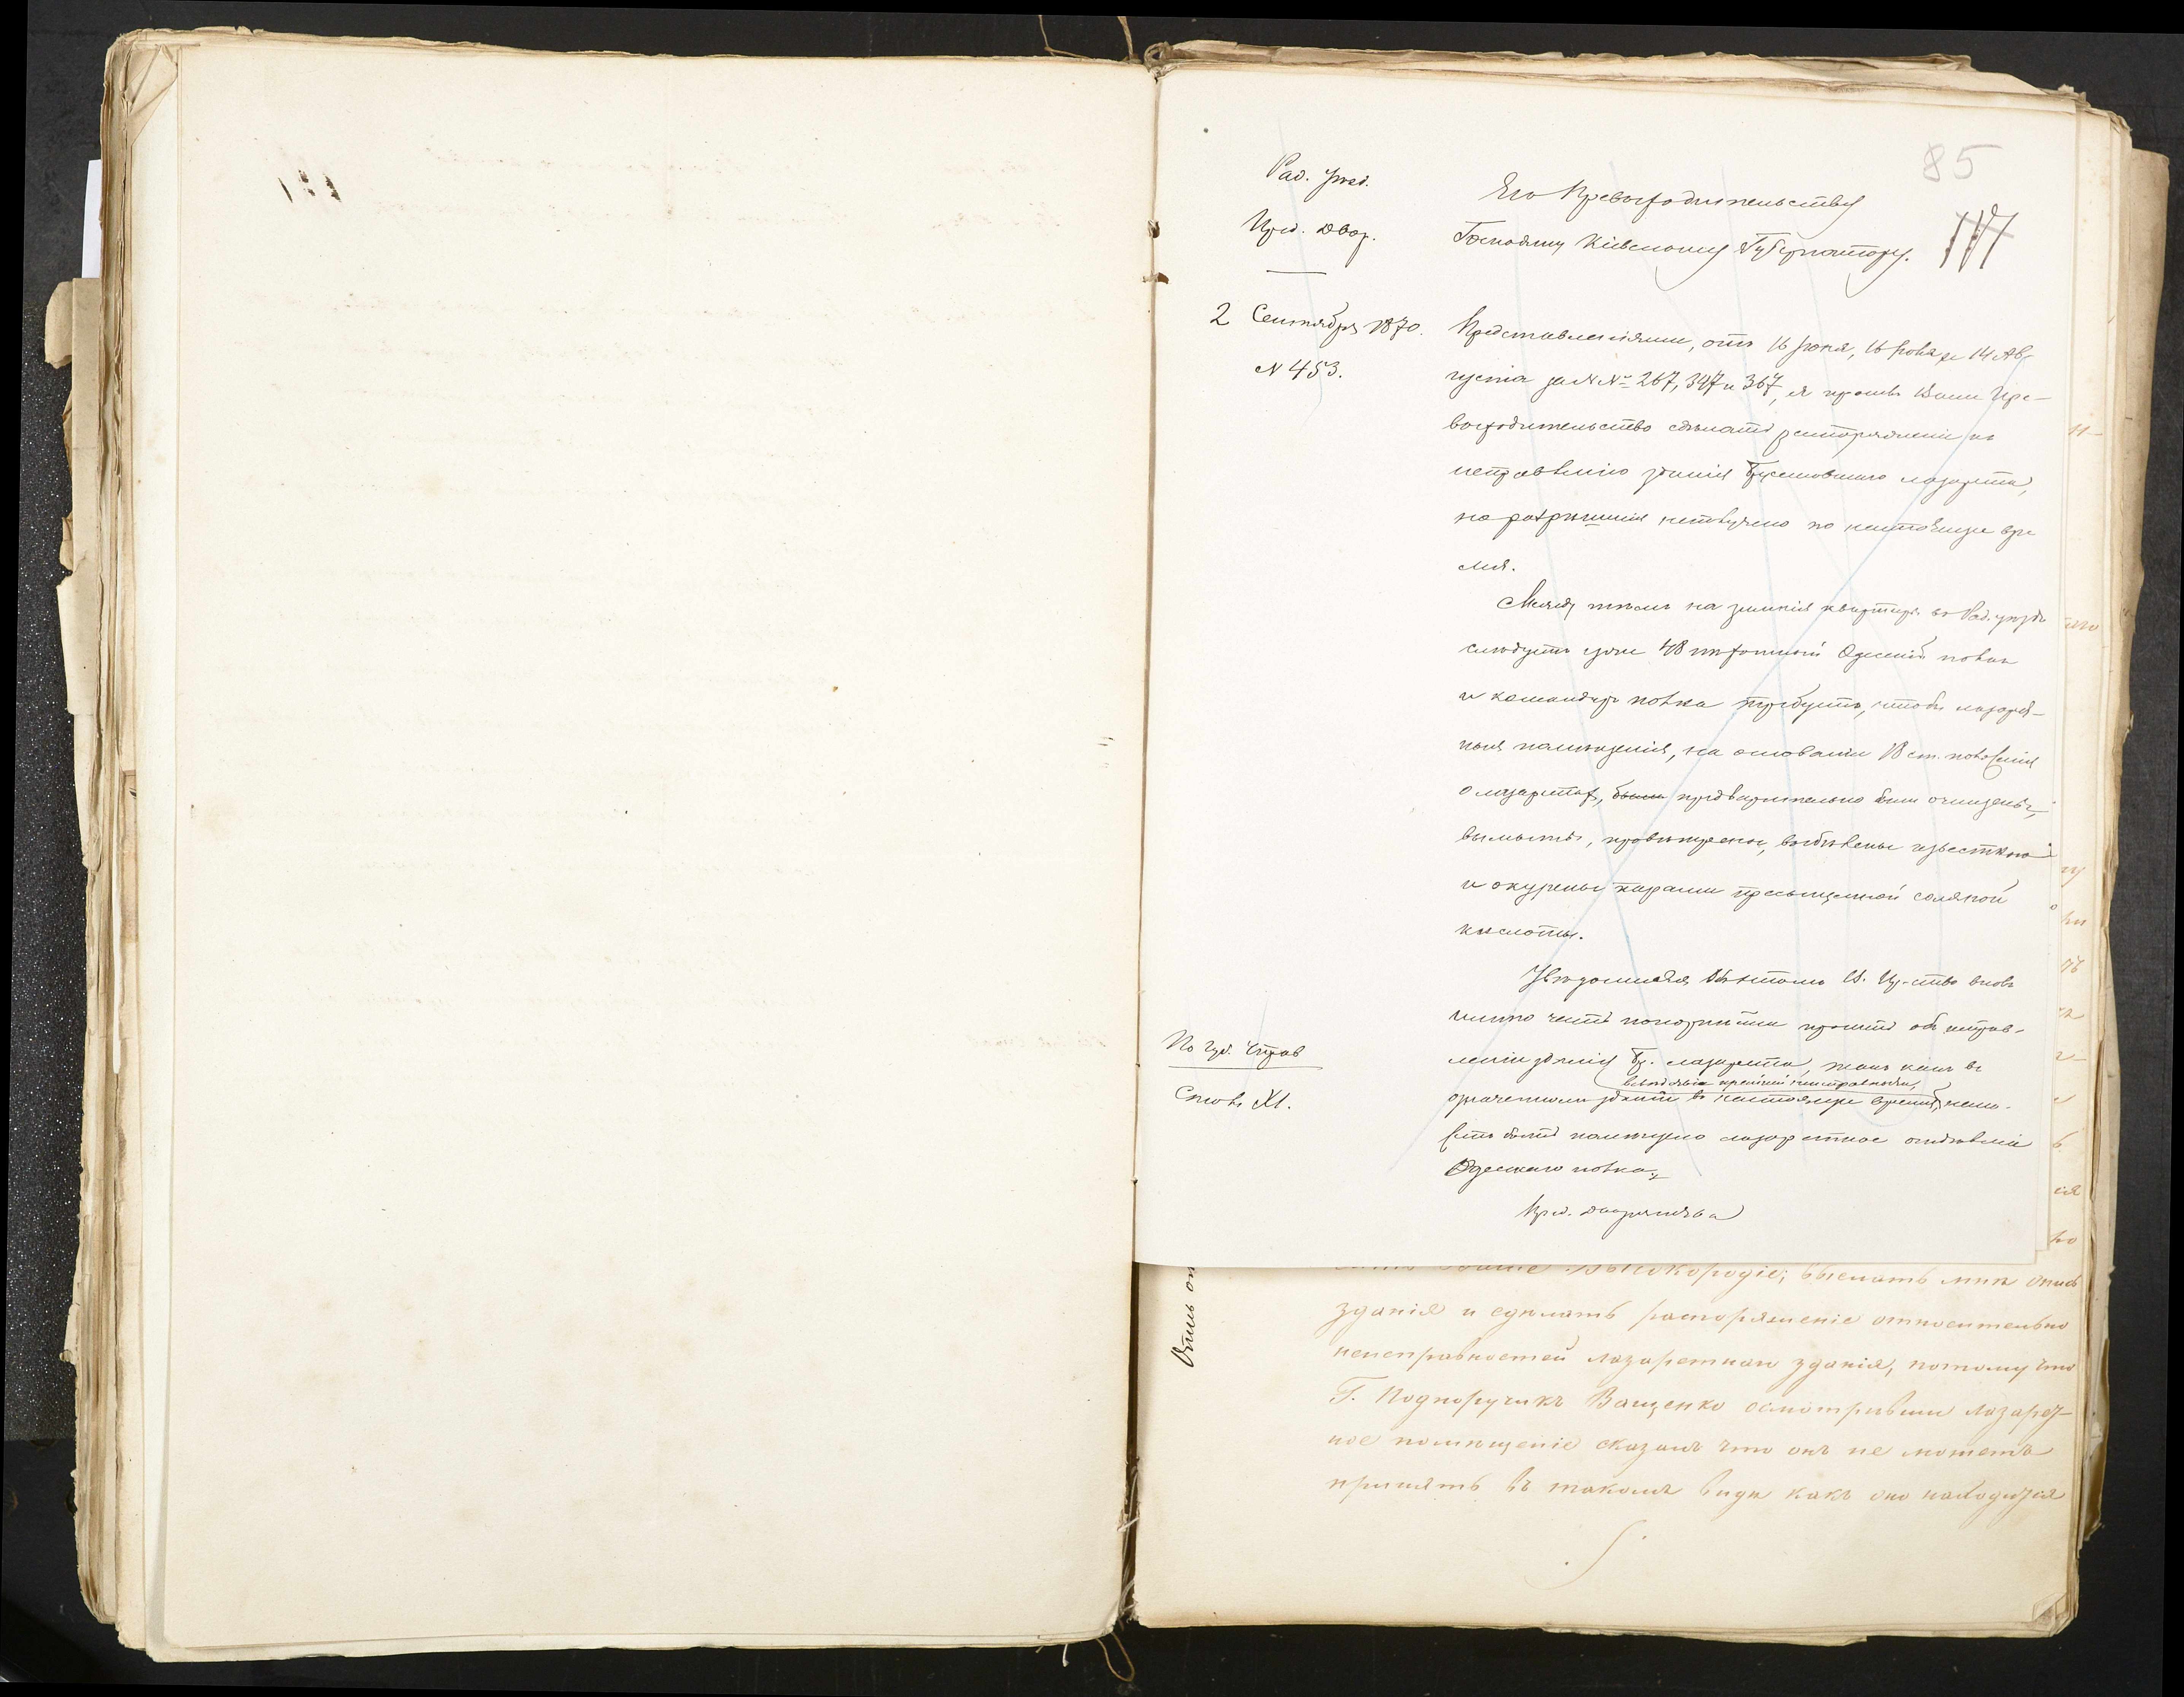 85
Рад. уѣзд.
Пред. Двор.
2 Сентября 1870.
N 453.
Его Превосходительству
Господину Кіевскому Губернатору.
Представленіями, отъ 16 Іюня, 16 Іюля и 14 Ав-
густа за N№ 267, 347 и 367, я просилъ Ваше Пре-
восходительство сдѣлать распоряженіе къ
исправленію зданія Брусиловскаго лазарета,
но разрѣшенія неполучено по настоящее вре
мя.
Между тѣмъ на зимнія квартиры въ Рад. уѣздъ
слѣдуетъ уже 48 пѣхотный Одесскій полкъ
и командиръ полка требуетъ, чтобы лазарет-
ныя помѣщенія, на основаніи 18 ст. положенія
о лазаретахъ, были предварительно были очищены,
вымыты, провѣтрены, выбѣлены известкою
и окурены парами пресыщенной соляной
кислоты.
Увѣдомляя объ этомъ В. Пр-ство вновь
имѣю честь покорнѣйше просить объ исправ-
леніи зданія Бр. лазарета, такъ какъ въ
вслѣдствіе крайней неисправности,
означенномъ зданіи въ настоящее время, немо-
жетъ быть помѣщено лазаретное отдѣленіе
Одесскаго полка.
Пред. Дворянства
По Губ. Управ
Столъ XI.
Ваше Высокородіе, выслать мнѣ опись
зданія и сдѣлать распоряженіе относительно
неисправностей лазаретнаго зданія, потому что
Г. Подпоручикъ Ващенко осмотрѣвши лазарет-
ное помѣщеніе сказалъ что онъ не можетъ
принять въ такомъ видѣ какъ оно находится